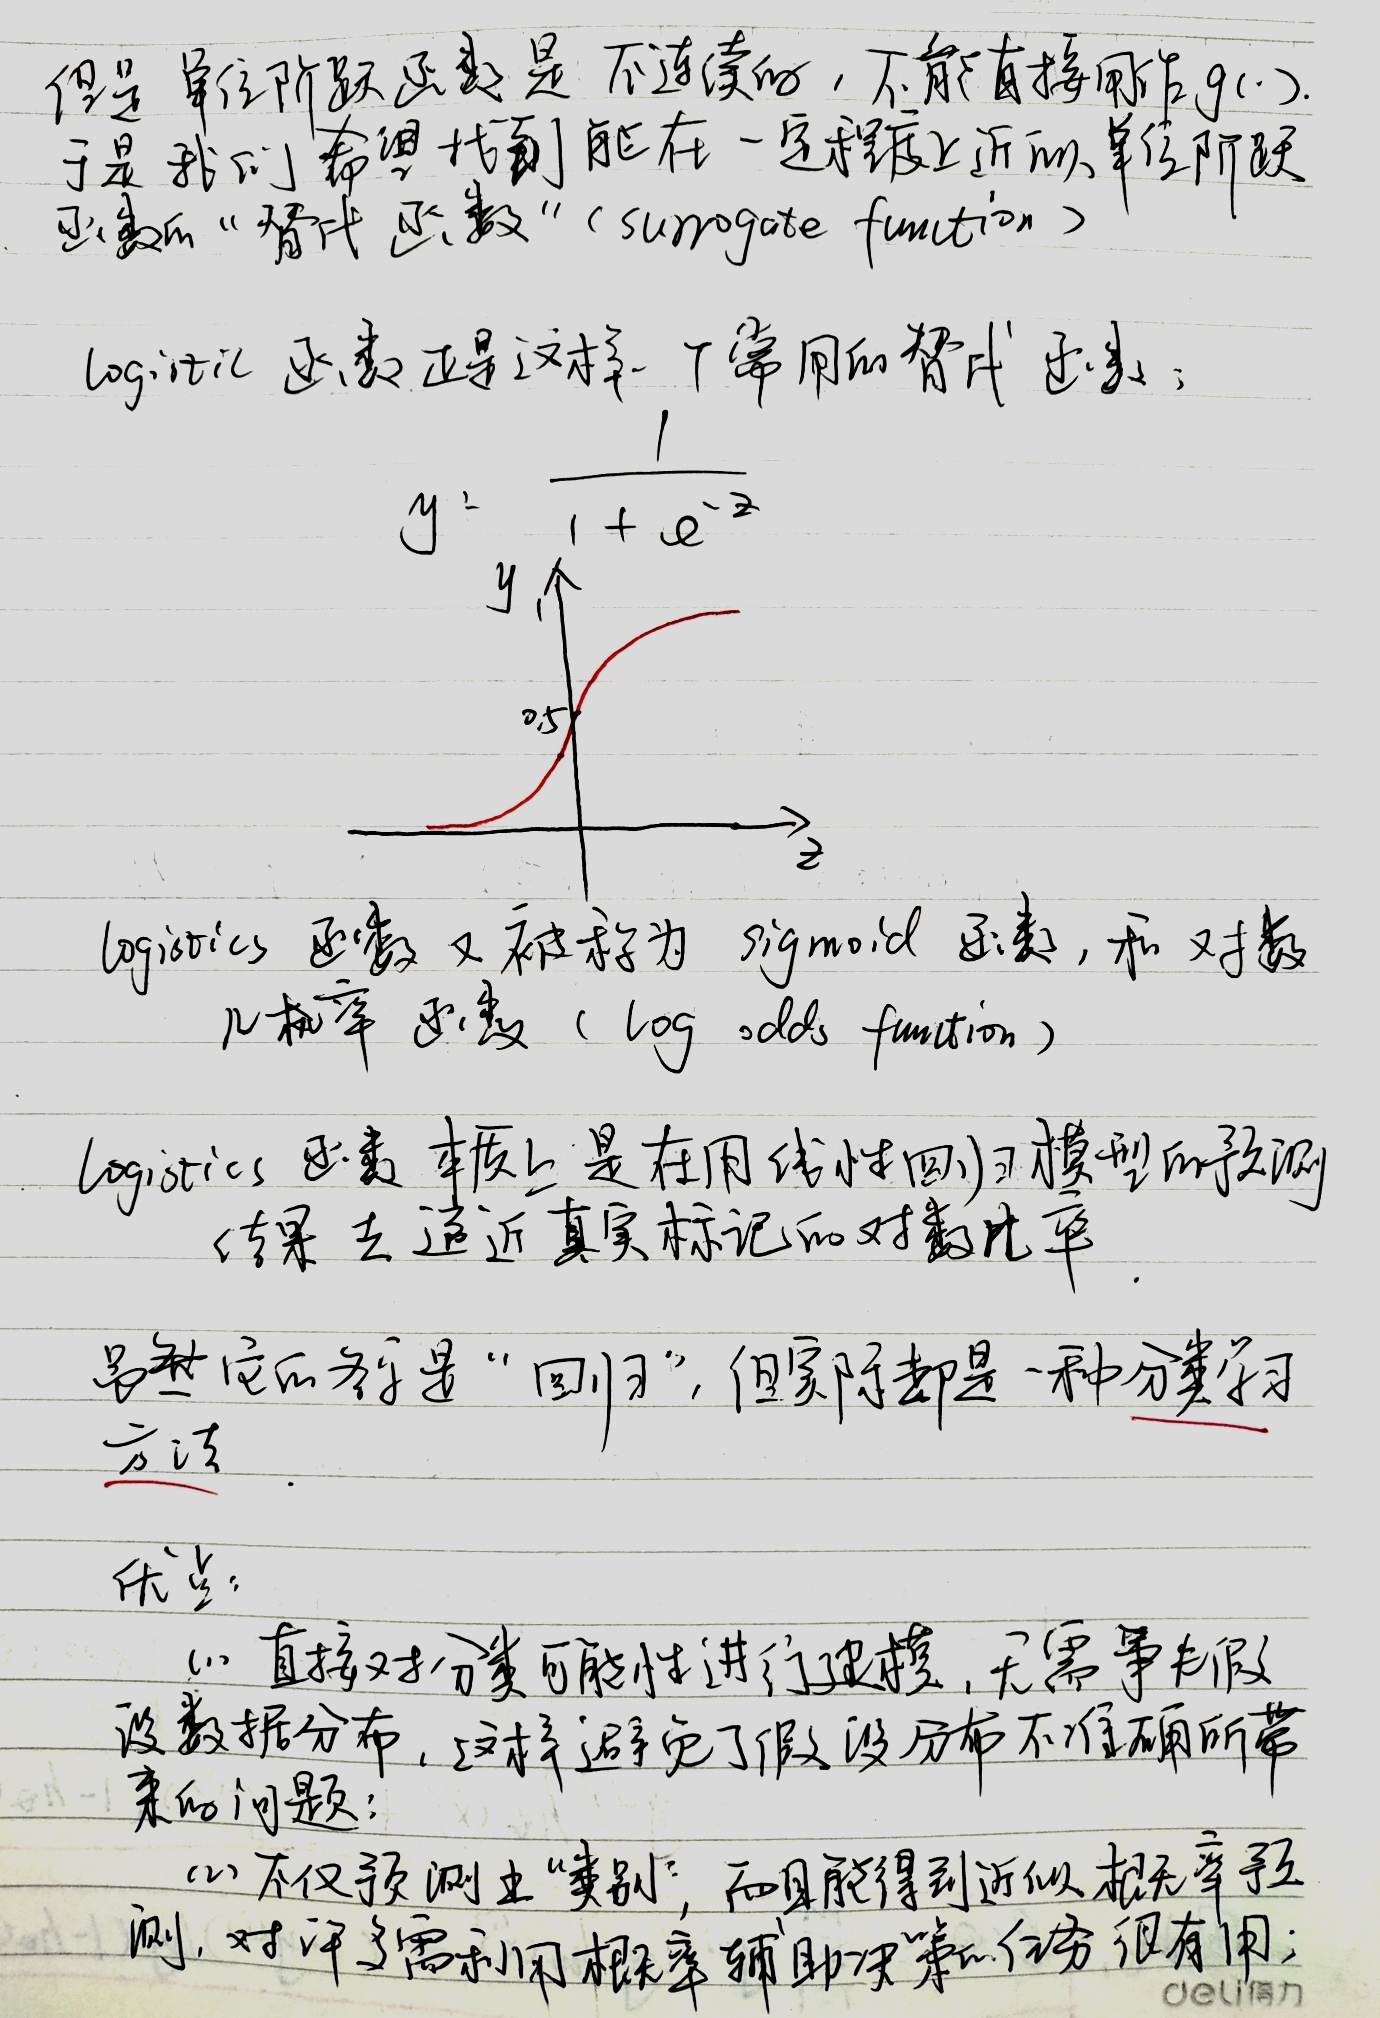 但是 单位阶跃函数是 不连续的，不能直接用作g(·).
于是我们希望找到能在一定程度上近似单位阶跃
函数的“替代函数”（surrogate function）
logistic 函数正是这样一个常用的替代函数：
y = \frac{1}{1 + e^{-z}}
y
1
0.5
z
logistics 函数又被称为 sigmoid 函数，和 对数
几概率 函数（log odds function）
logistics 函数 本质上是在用线性回归模型的预测
结果去逼近真实标记的对数几率.
虽然它的名字是“回归”，但实际却是一种分类学习
方法.
优点：
(1) 直接对分类可能性进行建模，无需事先假
设数据分布，这样避免了假设分布不准确所带
来的问题；
(2) 不仅预测出“类别”，而且能得到近似概率预
测，对许多需利用概率辅助决策的任务很有用；
deli得力